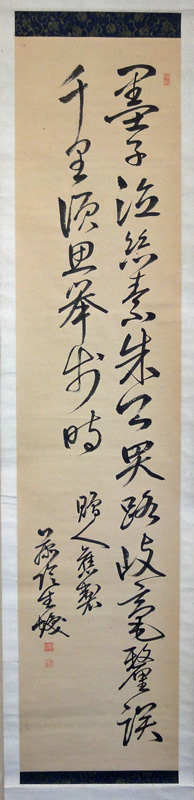 墨子泣絲素朱公哭路岐毫釐誤
千里須思舉步時
贈人舊製